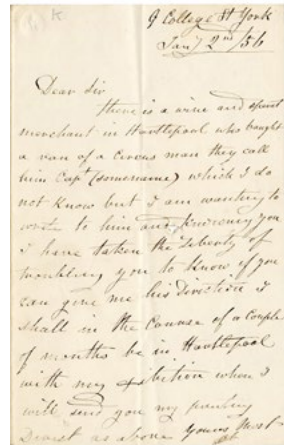 9 College St York
Jany 2nd /56
Dear Sir
there is a wine and spirit
merchant in Hartlepool who bought
a van of a Circus man they call
him Capt (somename) which I do
not Know but I am wanting to
write to him and you
I have taken the Liberty of
troubling you to Know if you
can give me his Direction I
shall in the Course of a Couple
of months be in Hartlepool
with my when I
will send you my
Direct as above Yours